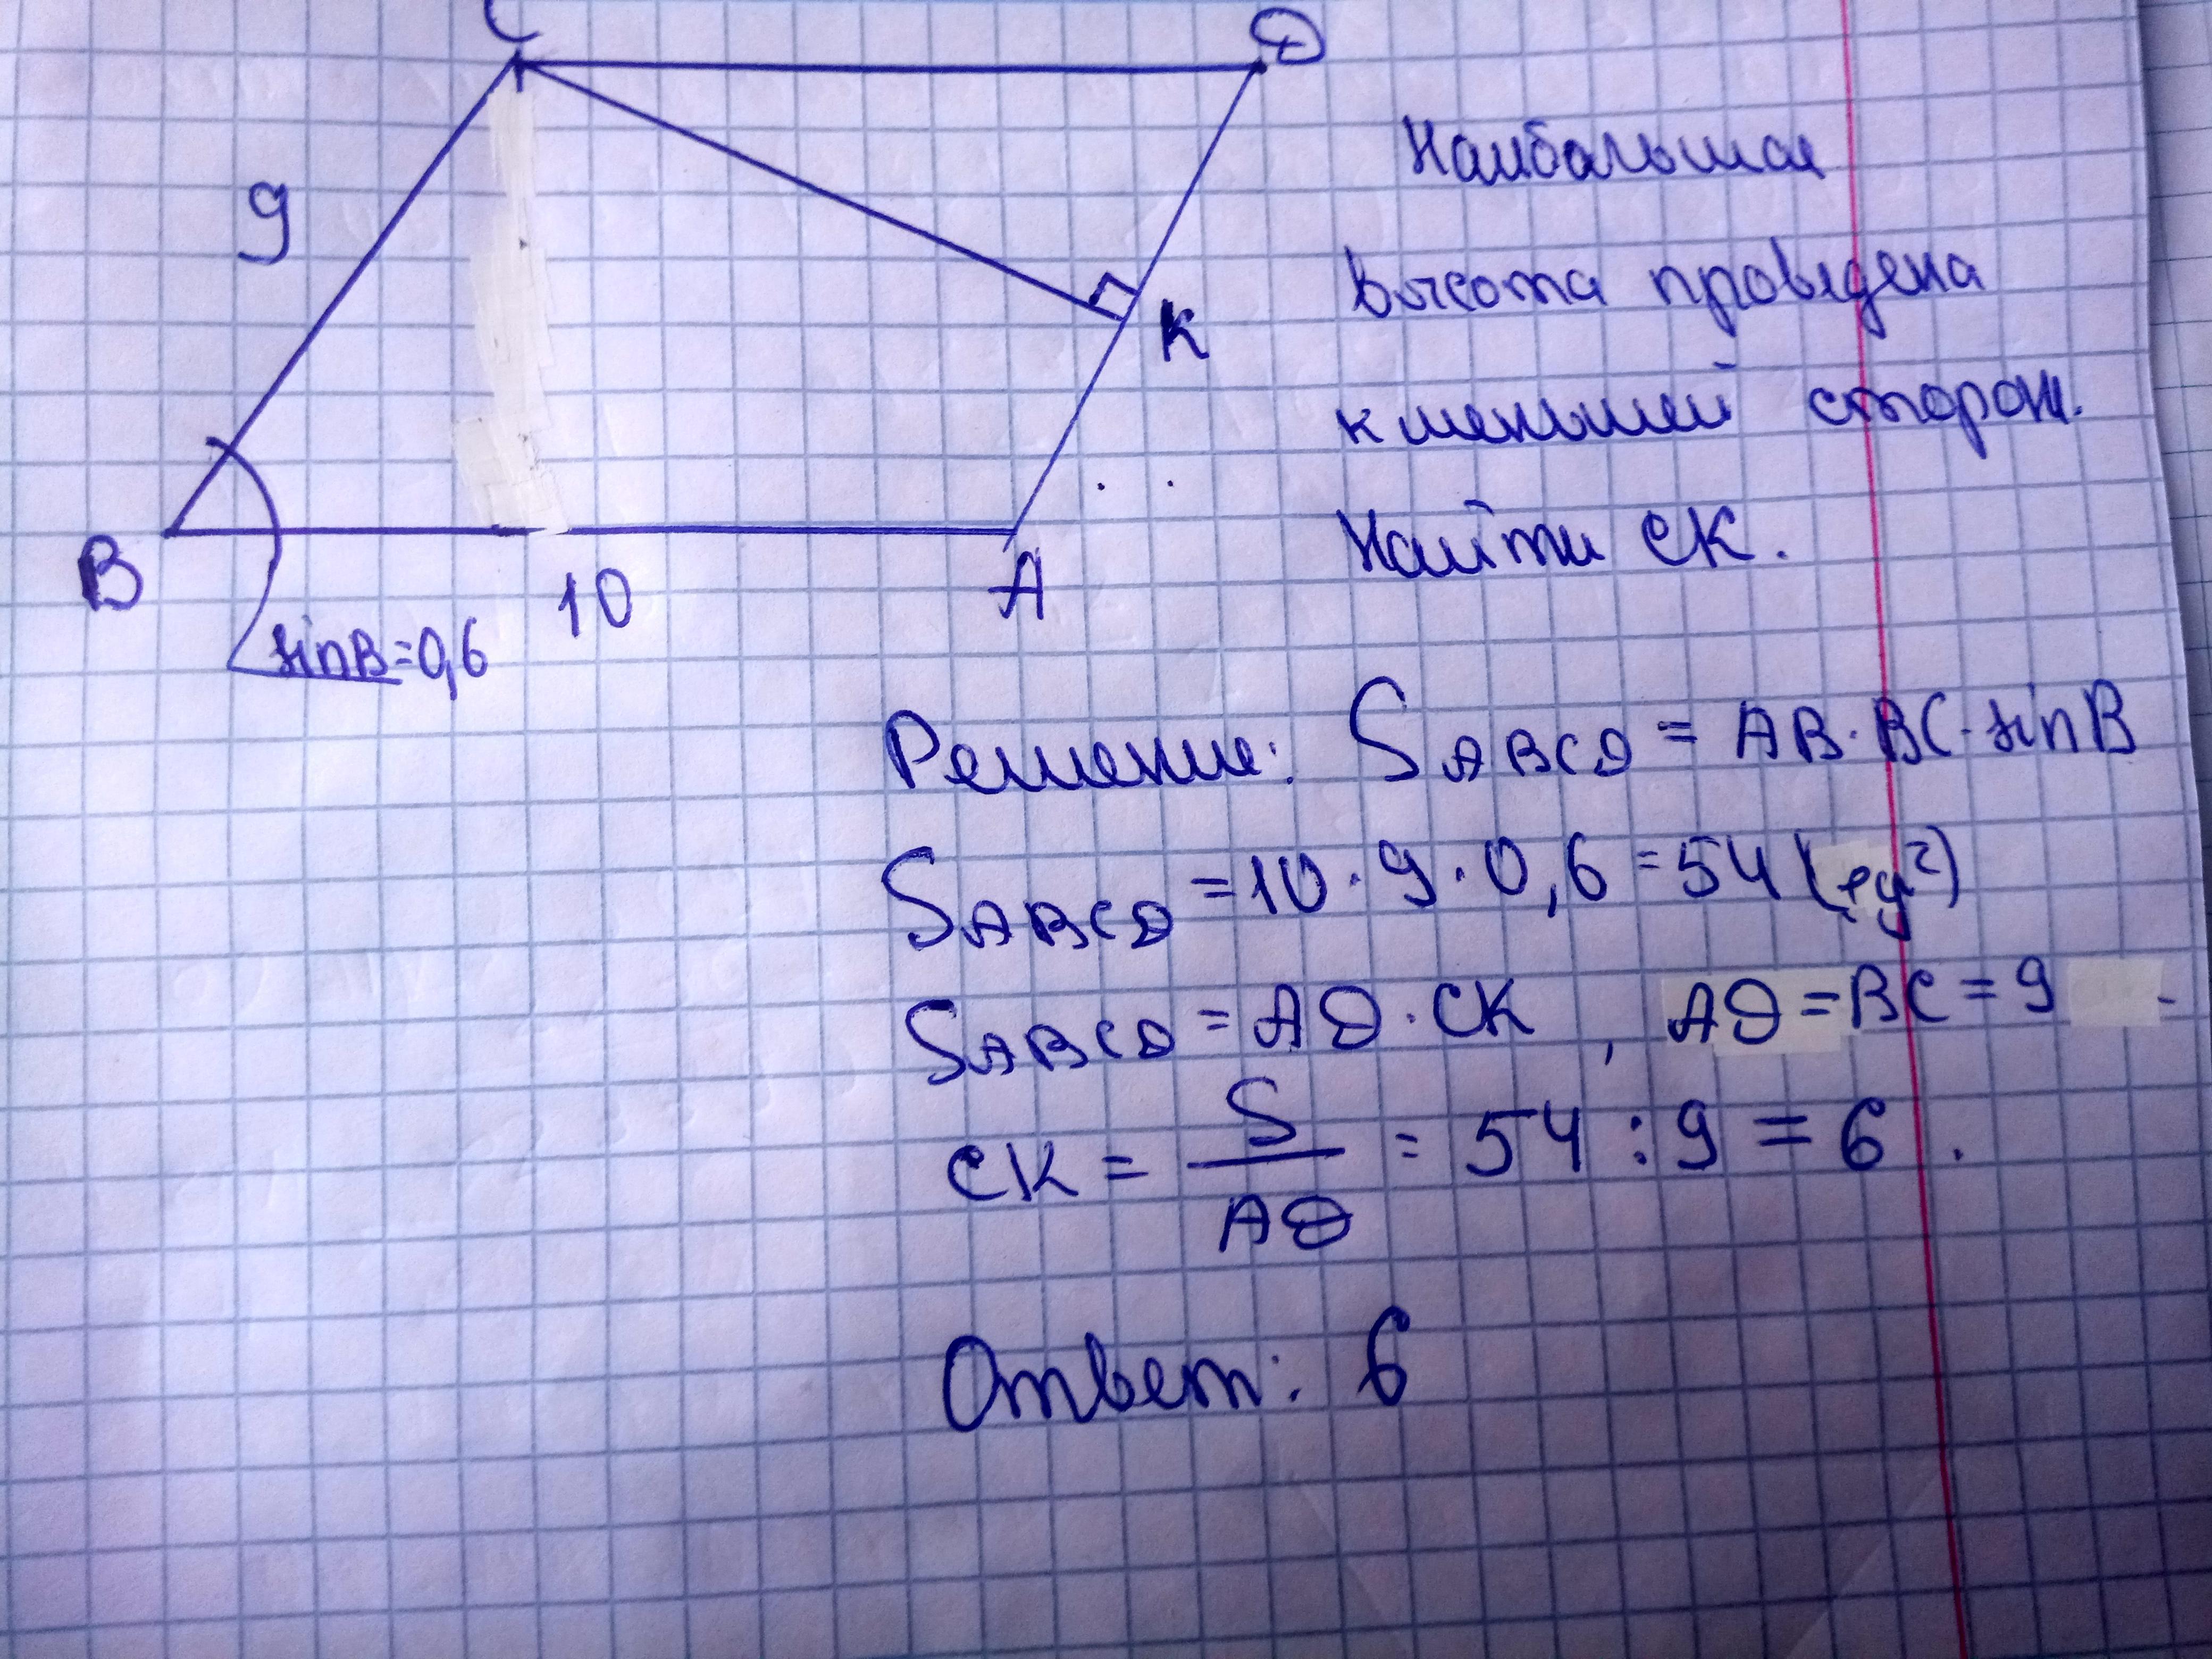 C D
Наибольшая
9
высота проведена
K
к меньшей сторон.
Найти CK.
B 10 A
sinB=0,6
Решение: SABCD = AB·BC·sinB
SABCD =10·9·0,6=54(ед²)
SABCD = AD·CK, AD=BC=9
CK = S/AD = 54:9=6.
Ответ: 6